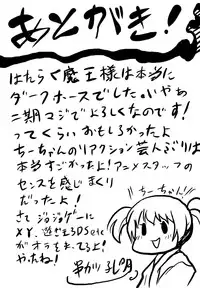 あとがき!
はたらく魔王様は本当に
ダークホースでした。いやぁ
二期マジでよろしくなのです!
ってくらいおもしろかったよ
ちーちゃんのリアクション芸人ぶりは
本当すごかったよ!アニメスタッフの
センスを感じまくり
だったよ!
さて ジョジョゲーに
XY、遊戯王3DS etc
がオラをまってるよ!
やったね!
ちーちゃん!
串がり